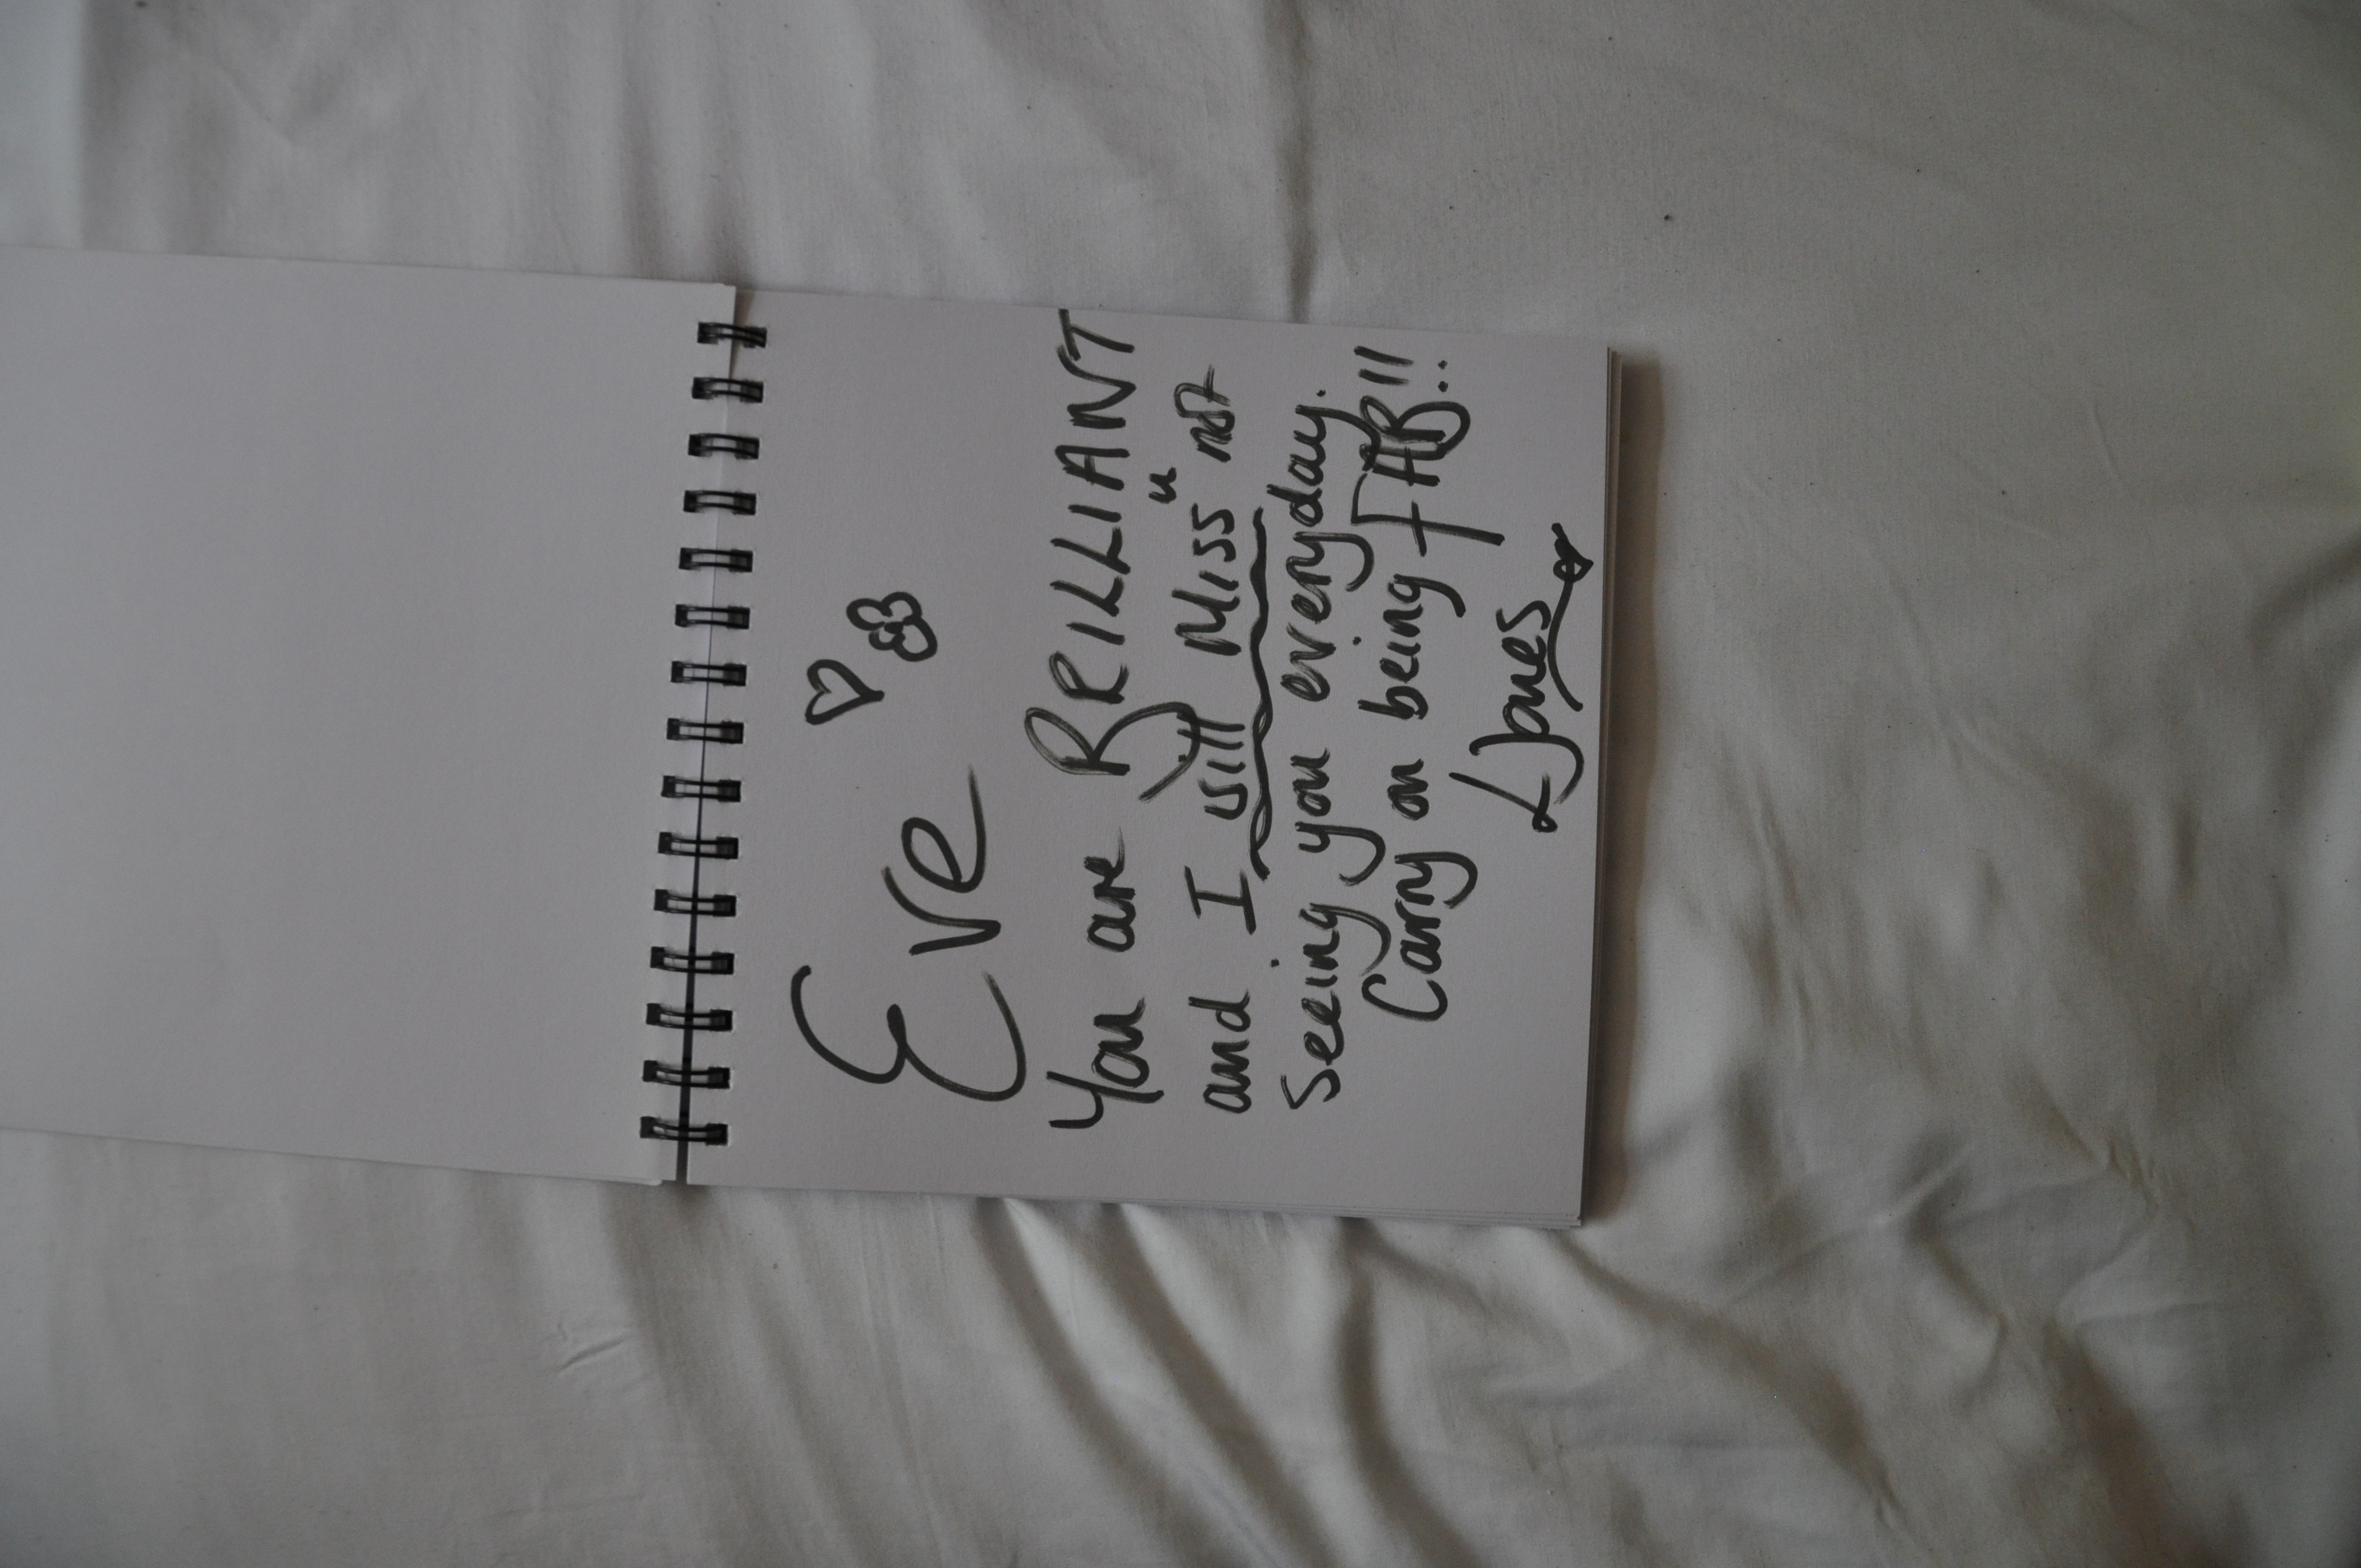 Eve
You are BRILLIANT
and I will Miss u not
seeing you everyday.
Carry on being FAB!!
L Jones